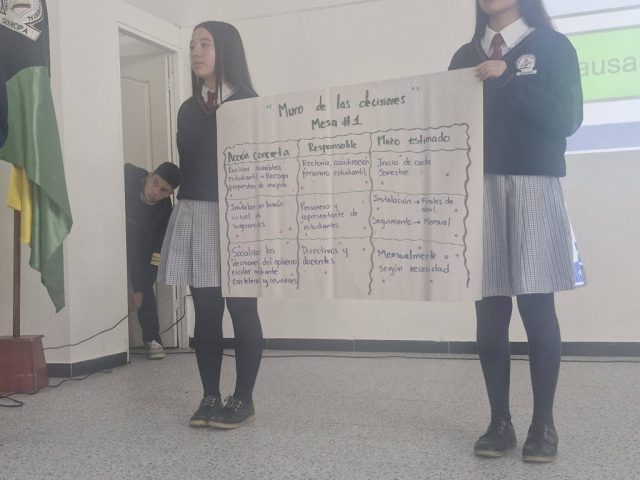 GRANCOPA
ausa
"Muro de las decisiones"
Mesa #1
Acción concreta
Responsable
Plazo estimado
Realizar asamblea
estudiantil → Recoger
propuestas de mejora
Rectoría, coordinación
personero estudiantil
Inicio de cada
Semestre.
Instalar un buzón
virtual de
sugerencias.
Personera y
representante de
estudiantes.
Instalación → Finales de
abril.
Seguimiento → Mensual
Socializar las
decisiones del gobierno
escolar mediante
carteleras y reuniones
Directivos y
docentes
Mensualmente o
según necesidad.